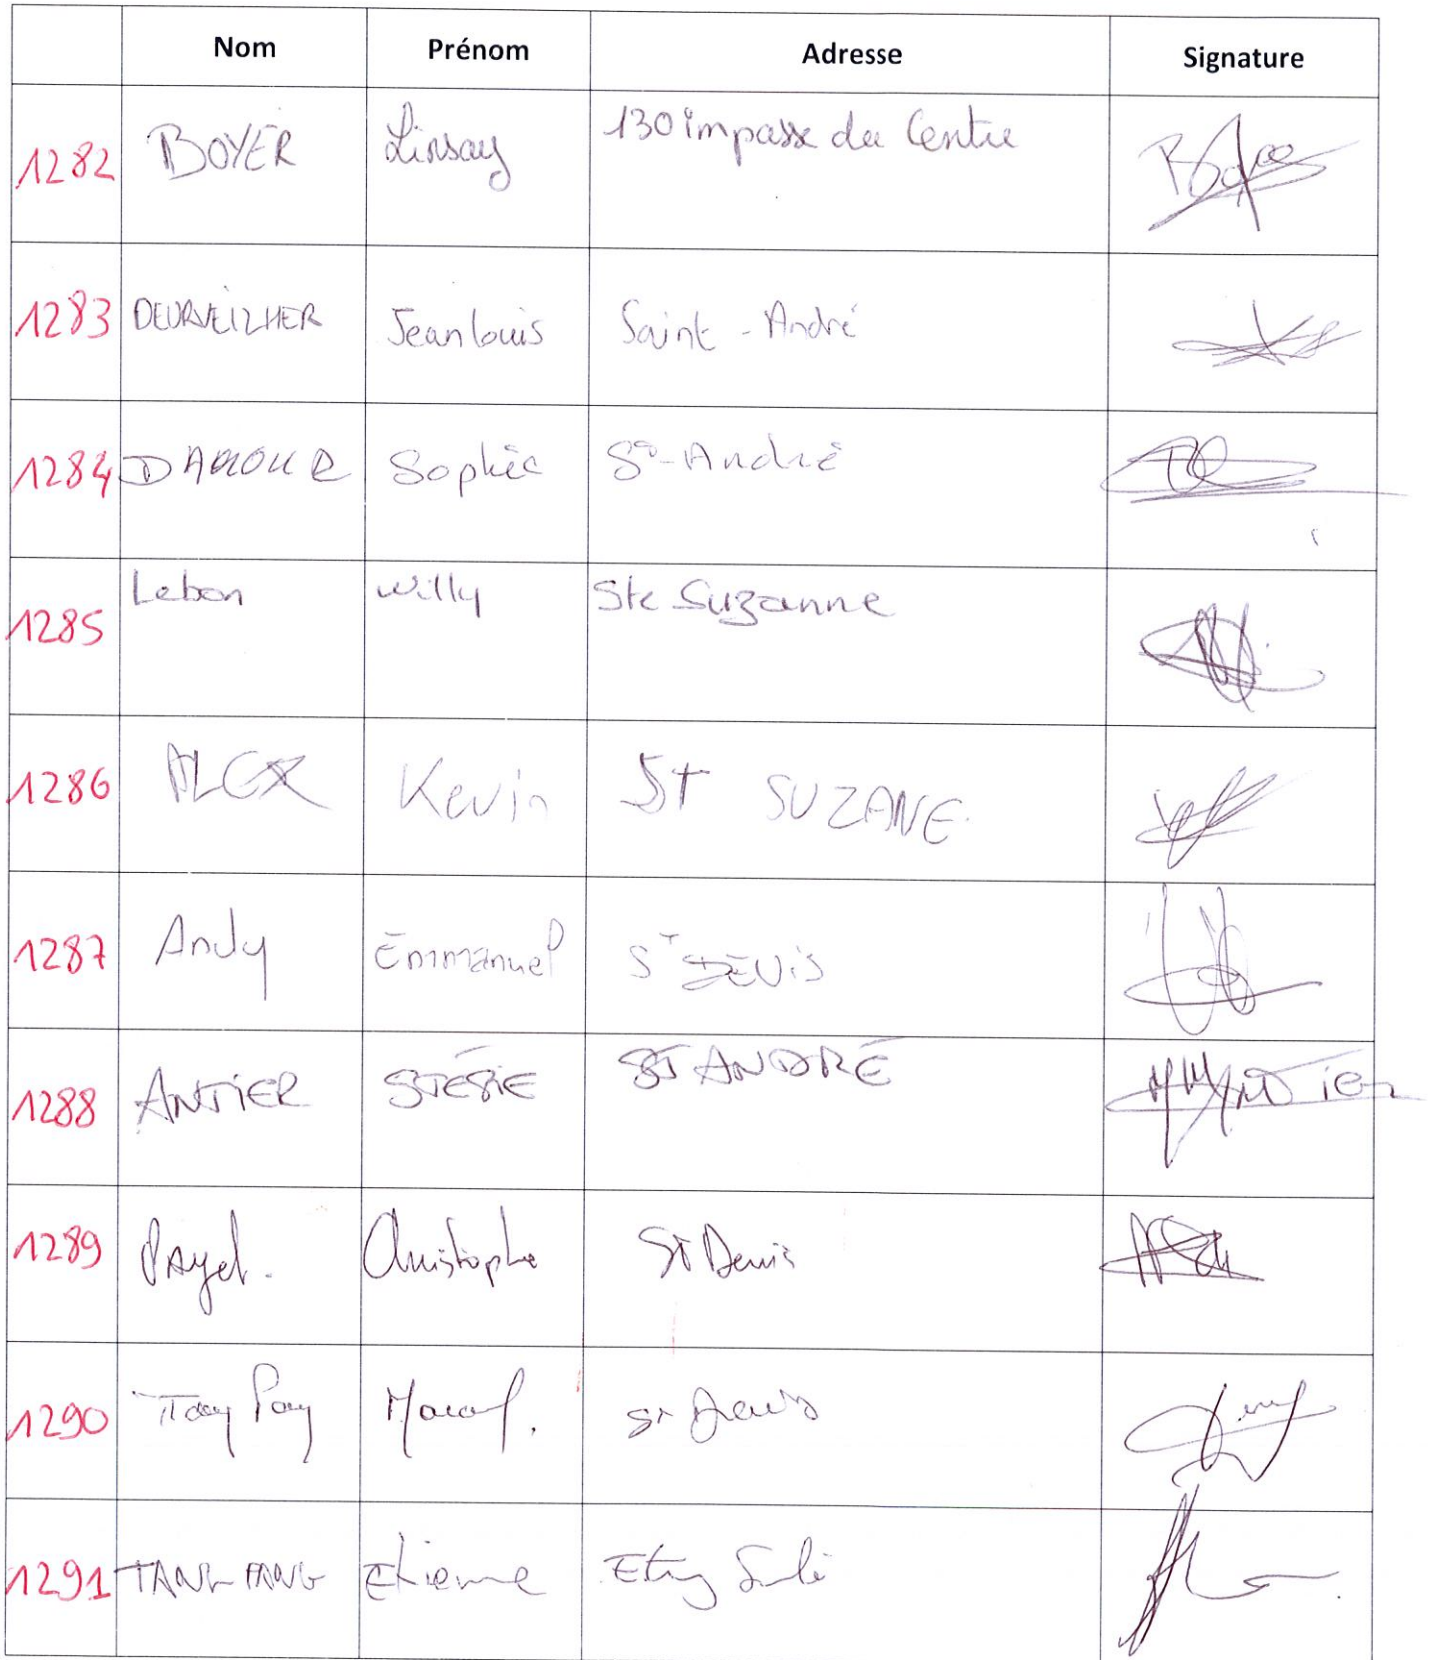 Nom Prénom Adresse Signature
1282 BOYER Linsay 130 impasse du Centre
1283 DEURVEILHER Jean louis Saint - André
1284 DAMOUR Sophie St-André
1285 Lebon Willy Ste Suzanne
1286 ALEX Kevin ST SUZANE
1287 Andy Emmanuel ST DENIS
1288 ANTIER STESIE ST ANDRÉ
1289 Payet Christophe St Denis
1290 St Denis
1291 Etienne